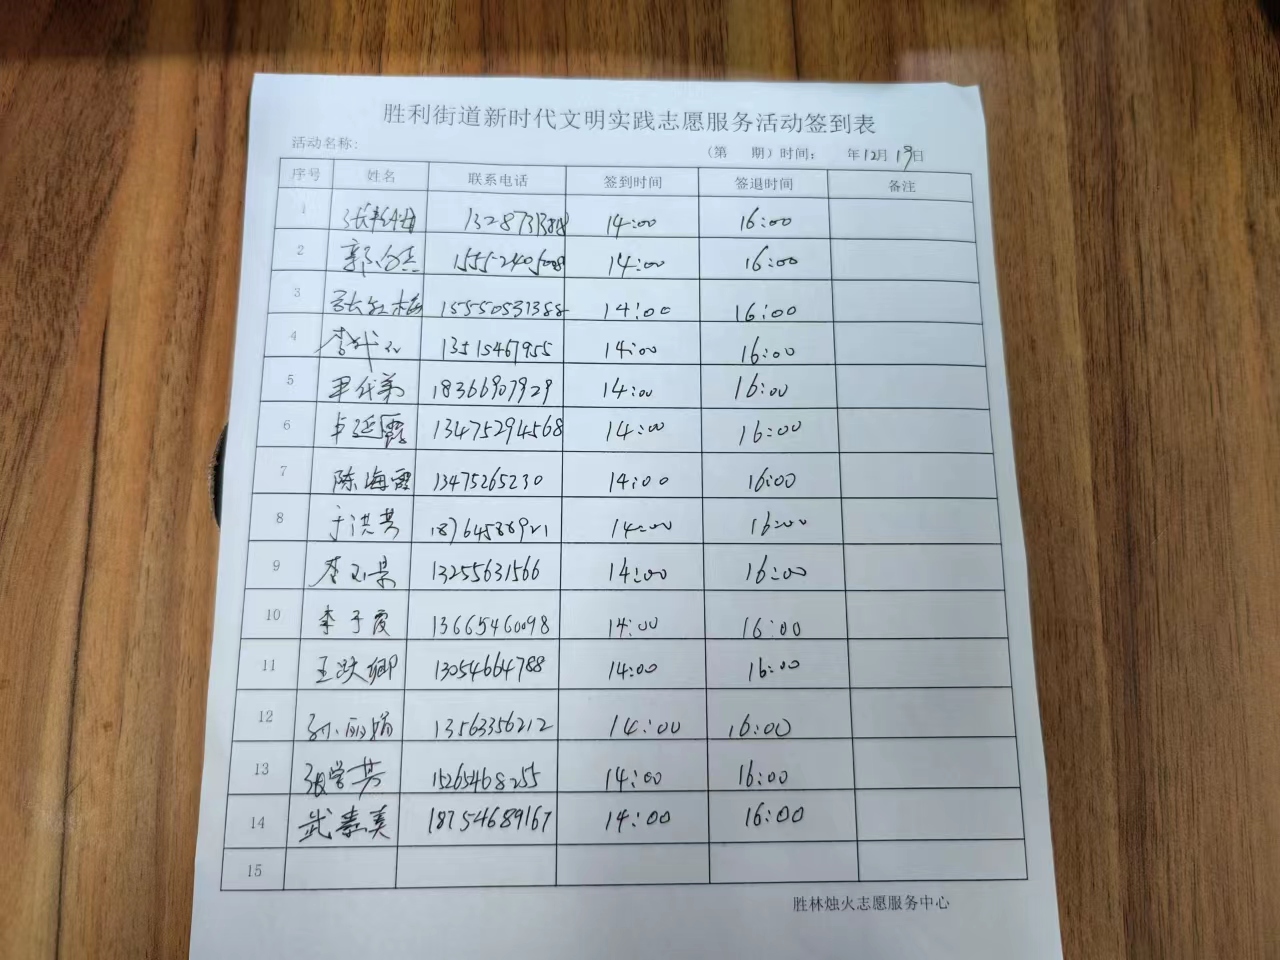 胜利街道新时代文明实践志愿服务活动签到表
活动名称: （第 期）时间： 年12月19日
序号 姓名 联系电话 签到时间 签退时间 备注
1 14:00 16:00
2 14:00 16:00
3 张红梅 15550531388 14:00 16:00
4 13515467955 14:00 16:00
5 18366907929 14:00 16:00
6 卓延霞 13475294568 14:00 16:00
7 陈海霞 13475265230 14:00 16:00
8 于洪芳 18764588921 14:00 16:00
9 李玉景 13255631566 14:00 16:00
10 李子霞 13665460098 14:00 16:00
11 王跃卿 13054664788 14:00 16:00
12 孙丽娟 13563356212 14:00 16:00
13 张学芬 15265468255 14:00 16:00
14 武素美 18754689167 14:00 16:00
15
胜林烛火志愿服务中心